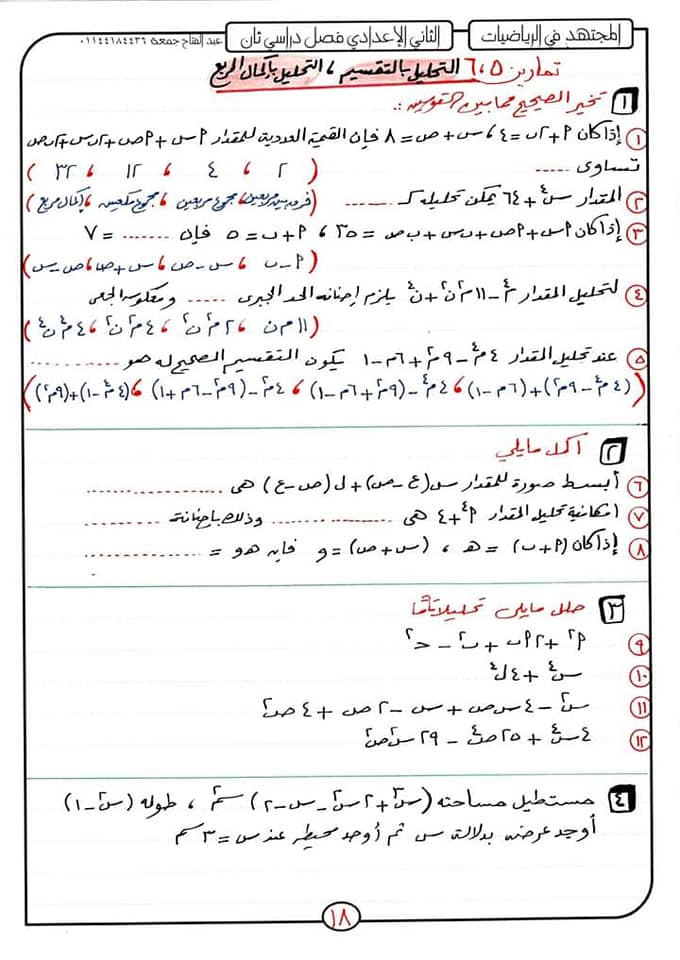 المجتهد في الرياضيات
الثاني الإعدادي فصل دراسي ثان
عبد الفتاح جمعة ٠١١٤٤١٨٤٤٣٦
تمارين ٦،٥ التحليل بالتقسيم ، التحليل بإكمال المربع
١ تخير الصحيح مما بين القوسين :.
١ إذا كان ٢ + ٢ب = ٤ ، س + ص = ٨ فإن القيمة العددية للمقدار ٢س + ٢ص + ٢ب س + ٢ب ص
تساوى ...... ( ٢ ، ٤ ، ١٢ ، ٣٢ )
٢ المقدار س⁴ + ٦٤ يمكن تحليله كـ ...... ( فرق بين مربعين ، مجموع مربعين ، مجموع مكعبين ، إكمال مربع )
٣ إذا كان ٢س + ٢ص + ب س + ب ص = ٣٥ ، ٢ + ب = ٥ فإن ...... = ٧
( ٢ - ب ، س - ص ، س + ص ، ص - س )
٤ لتحليل المقدار م⁴ - ١١م²ن² + ن⁴ يلزم إضافة الحد الجبرى ...... ومعكوسه الجمعى
( ١١م ن ، ٢م²ن² ، ٤م²ن² ، ٤م⁴ن⁴ )
٥ عند تحليل المقدار ٤م⁴ - ٩م² + ٦م - ١ يكون التقسيم الصحيح له هو ............
( (٤م⁴ - ٩م²) + (٦م - ١) ، ٤م⁴ - (٩م² + ٦م - ١) ، ٤م⁴ - (٩م² - ٦م + ١) ، (٤م⁴ - ١) + (٩م²) )
٢ أكمل مايلي
٦ أبسط صورة للمقدار س(ع - ص) + ل(ص - ع) هى ..................
٧ امكانية تحليل المقدار ٢⁴ + ٤ هى .................. وذلك بإضافة ............
٨ إذا كان (٢ + ب) = هـ ، (س + ص) = و فإن هو = ..................
٣ حلل مايلى تحليلا تامًا
٩ ٢² + ٢٢ب + ب² - حـ²
١٠ س⁴ + ٤ل⁴
١١ س² - ٤س ص + س - ٢ص + ٤ص²
١٢ ٤س⁴ + ٢٥ص⁴ - ٢٩س²ص²
٤ مستطيل مساحته (س³ + ٢س² - س - ٢) سم² ، طوله (س² - ١)
أوجد عرضه بدلالة س ثم أوجد محيطه عند س = ٣ سم
١٨